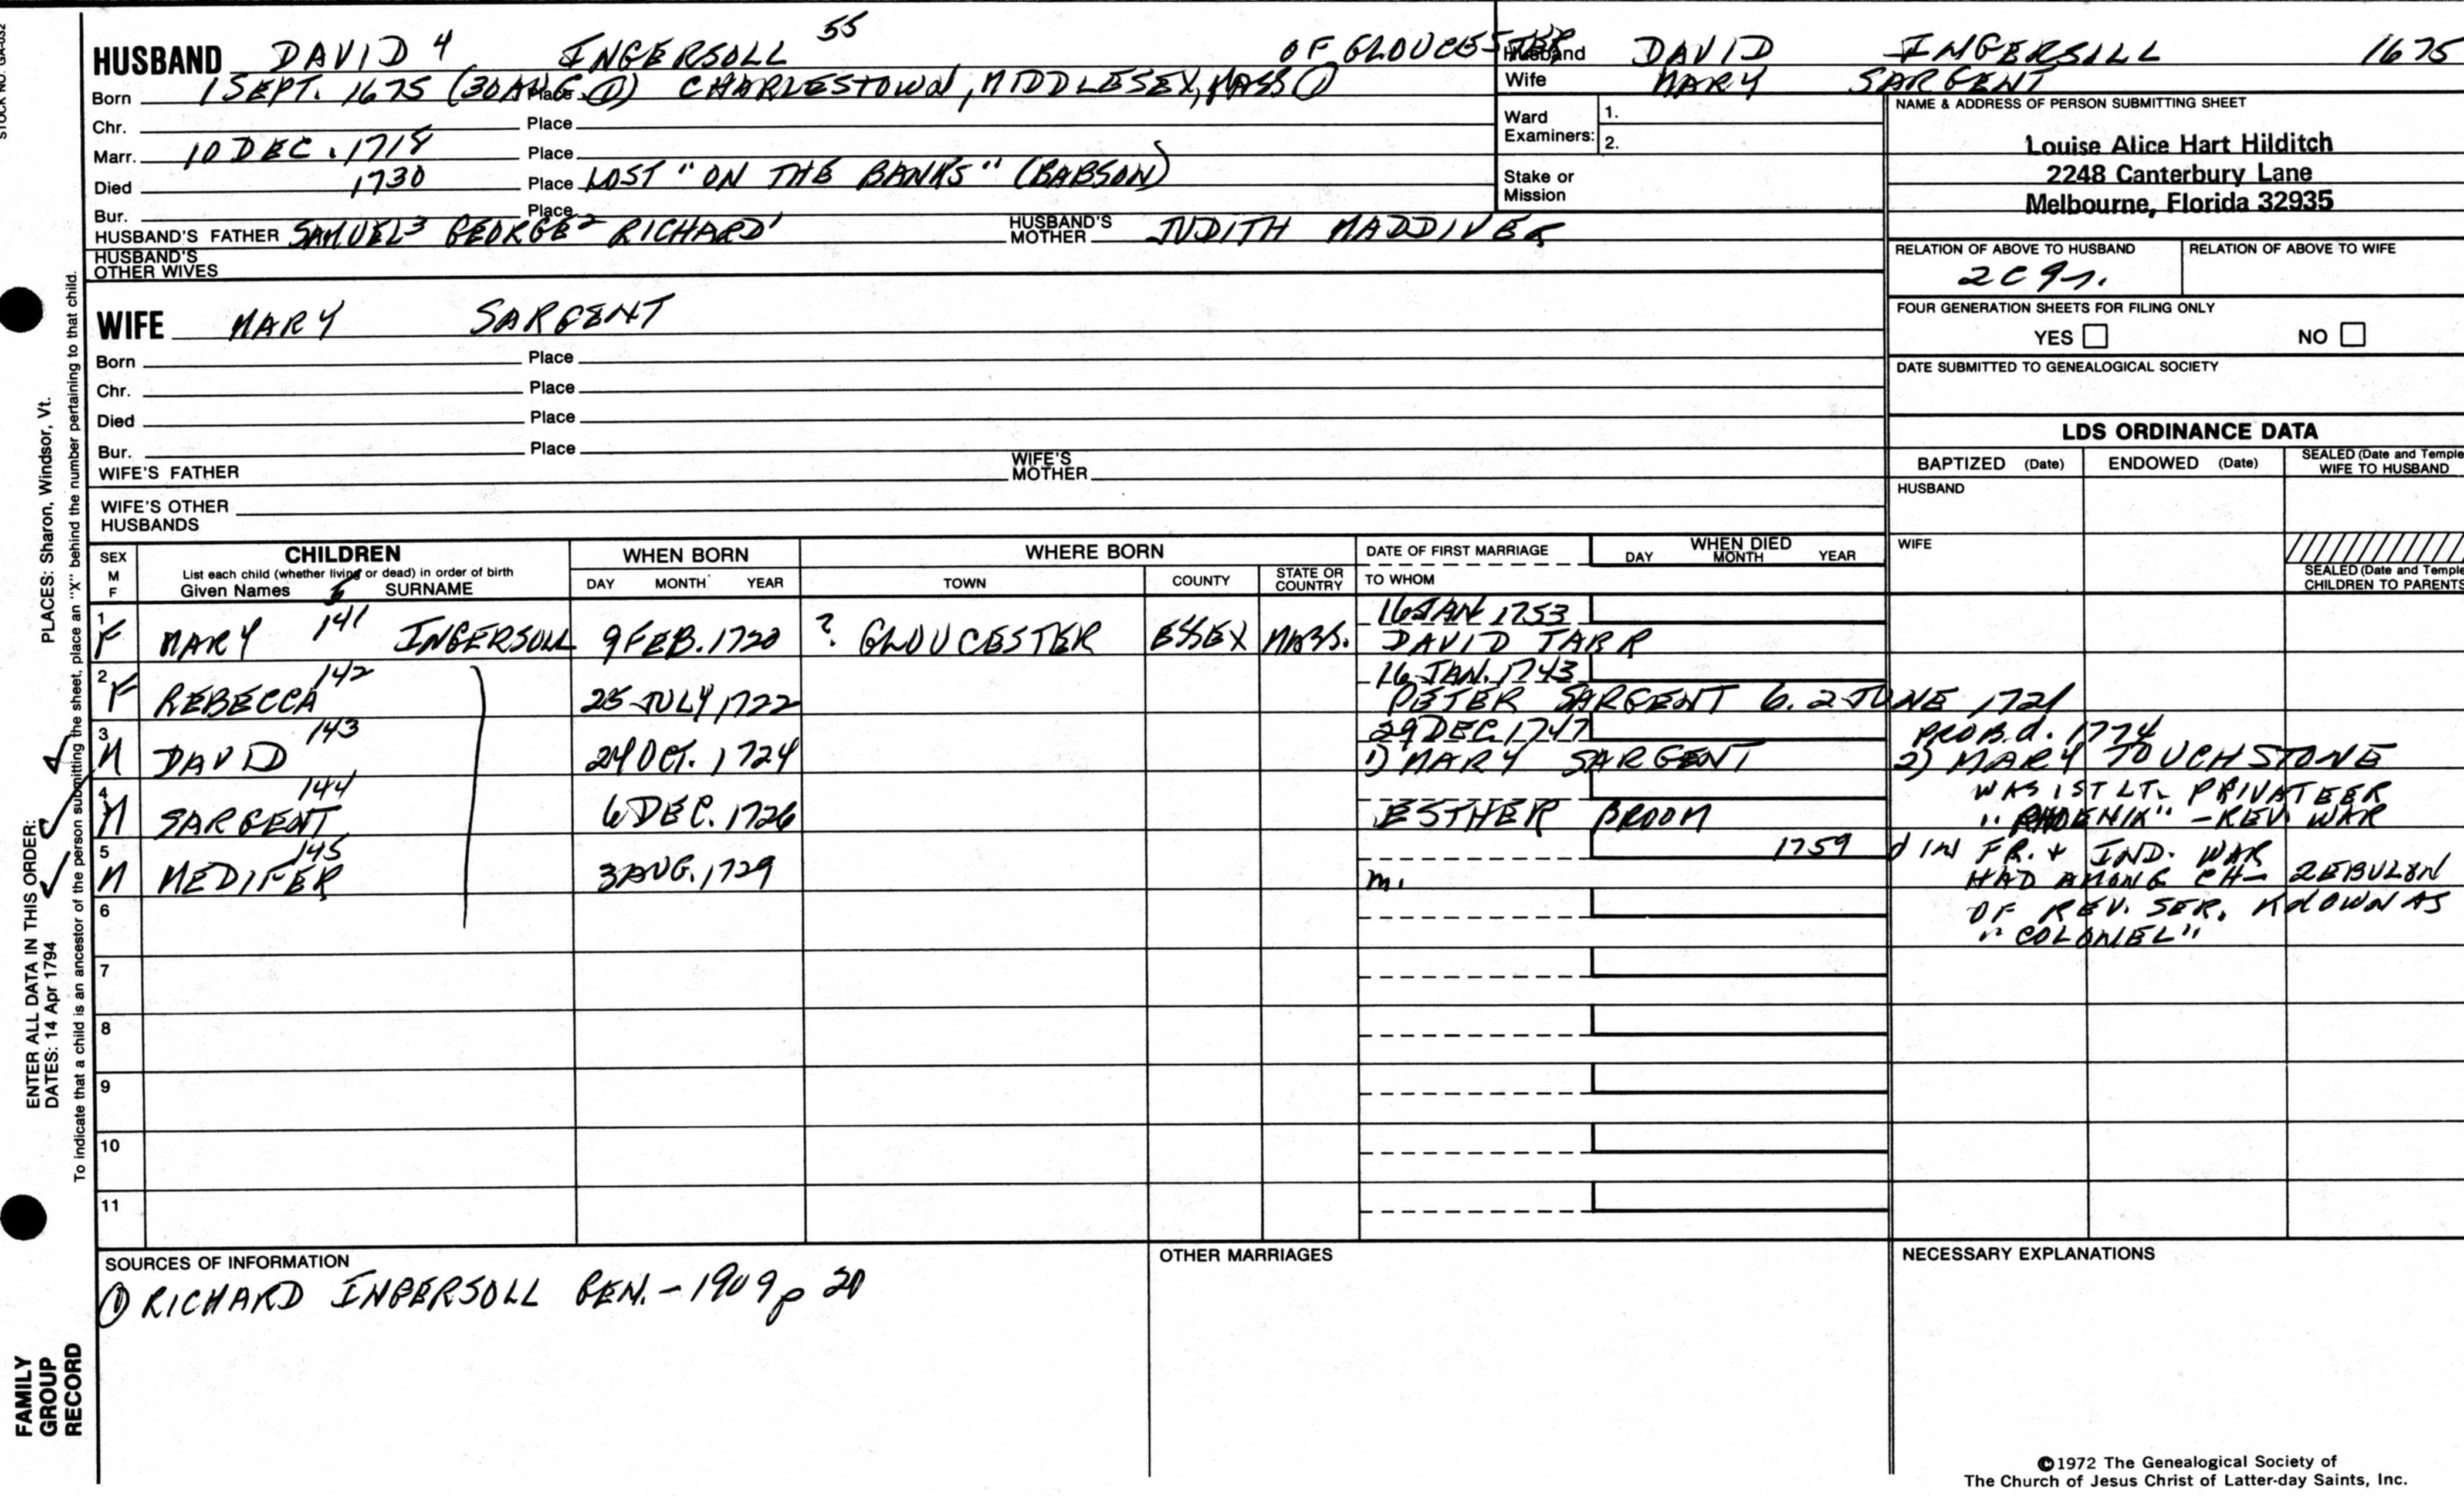 STOCK NO. GA-032
HUSBAND DAVID 4 INGERSOLL 55 OF GLOUCESTER
Born 1 SEPT. 1675 (30 AUG. ①) Place CHARLESTOWN, MIDDLESEX, MASS ①
Chr. Place
Marr. 10 DEC. 1718 Place
Died 1730 Place LOST "ON THE BANKS" (BABSON)
Bur. Place
HUSBAND'S FATHER SAMUEL3 GEORGE2 RICHARD1 HUSBAND'S MOTHER JUDITH MADDIVER
HUSBAND'S OTHER WIVES
Husband DAVID INGERSOLL 1675
Wife MARY SARGENT
Ward Examiners: 1.
2.
Stake or Mission
NAME & ADDRESS OF PERSON SUBMITTING SHEET
Louise Alice Hart Hilditch
2248 Canterbury Lane
Melbourne, Florida 32935
RELATION OF ABOVE TO HUSBAND RELATION OF ABOVE TO WIFE
2C9r.
FOUR GENERATION SHEETS FOR FILING ONLY
YES NO
DATE SUBMITTED TO GENEALOGICAL SOCIETY
WIFE MARY SARGENT
Born Place
Chr. Place
Died Place
Bur. Place
WIFE'S FATHER WIFE'S MOTHER
WIFE'S OTHER HUSBANDS
LDS ORDINANCE DATA
BAPTIZED (Date) ENDOWED (Date) SEALED (Date and Temple) WIFE TO HUSBAND
HUSBAND
WIFE
SEALED (Date and Temple) CHILDREN TO PARENTS
SEX M F CHILDREN WHEN BORN WHERE BORN DATE OF FIRST MARRIAGE WHEN DIED
List each child (whether living or dead) in order of birth
Given Names 5 SURNAME DAY MONTH YEAR TOWN COUNTY STATE OR COUNTRY TO WHOM DAY MONTH YEAR
16 JAN 1753
1 F MARY 141 INGERSOLL 9 FEB. 1720 ? GLOUCESTER ESSEX MASS. DAVID TARR
16 JAN. 1743
2 F REBECCA 142 25 JULY 1722 PETER SARGENT b. 2 JUNE 1721
29 DEC. 1747 PROB. d. 1774
3 M DAVID 143 24 OCT. 1724 1) MARY SARGENT 2) MARY TOUCHSTONE
4 M SARGENT 144 6 DEC. 1726 ESTHER BROOM
WAS 1ST LT. PRIVATEER
"PHOENIX" - REV. WAR
5 M MEDIFER 145 3 AUG. 1729 m. 1759
d IN FR. + IND. WAR
HAD AMONG CH- ZEBULON
OF REV. SER. KNOWN AS
"COLONEL"
6
7
8
9
10
11
SOURCES OF INFORMATION
① RICHARD INGERSOLL GEN. - 1909 p 20
OTHER MARRIAGES
NECESSARY EXPLANATIONS
©1972 The Genealogical Society of
The Church of Jesus Christ of Latter-day Saints, Inc.
ENTER ALL DATA IN THIS ORDER:
DATES: 14 Apr 1794 PLACES: Sharon, Windsor, Vt.
To indicate that a child is an ancestor of the person submitting the sheet, place an "X" behind the number pertaining to that child.
FAMILY
GROUP
RECORD